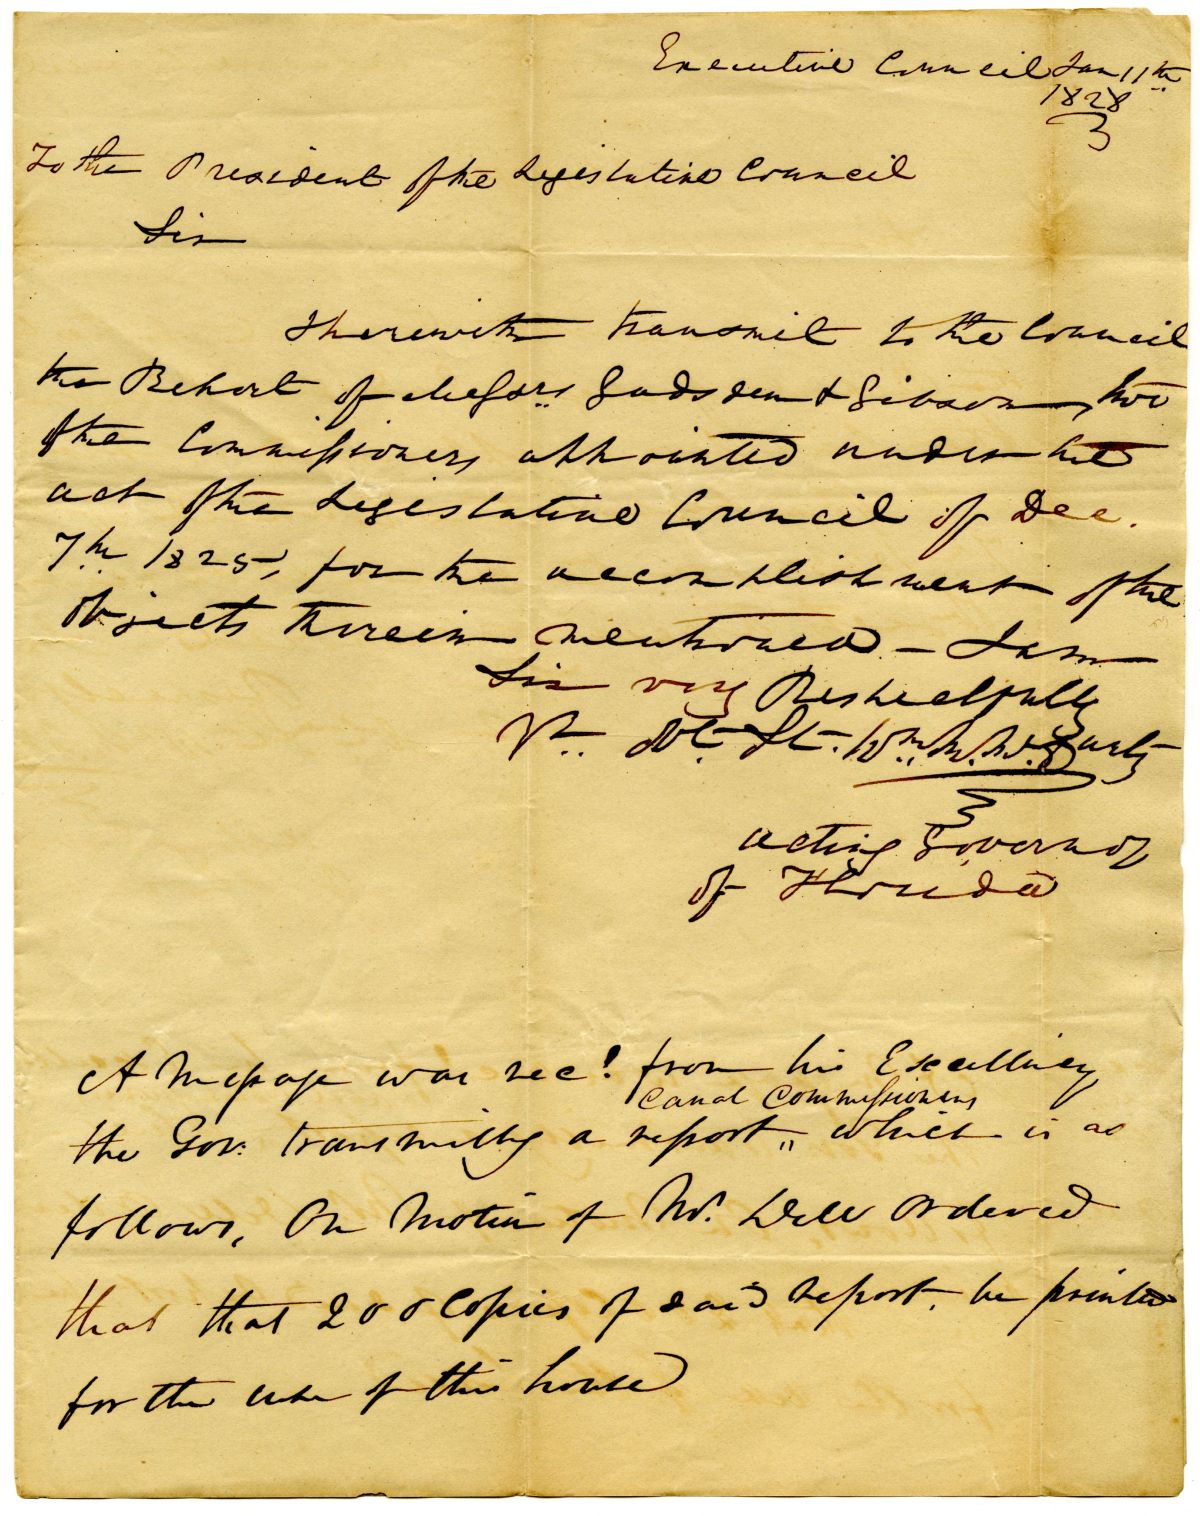 Executive Council Jan 11th
1828
To the President of the Legislative Council
Sir
I herewith transmit to the Council
the Report of Messrs Gadsden & Gibson, two
of the Commissioners appointed under the
act of the Legislative Council of Dec.
7th 1825, for the accomplishment of the
objects therein mentioned – I am
Sir very Respectfully
Yr. Obt. St. Wm. M. McCarty
acting Governor
of Florida
A Message was recd from his Excellency
Canal Commissioners
the Gov: transmitting a report " which is as
follows, On Motion of Mr. Dell Ordered
that that 200 Copies of said report, be printed
for the use of this house